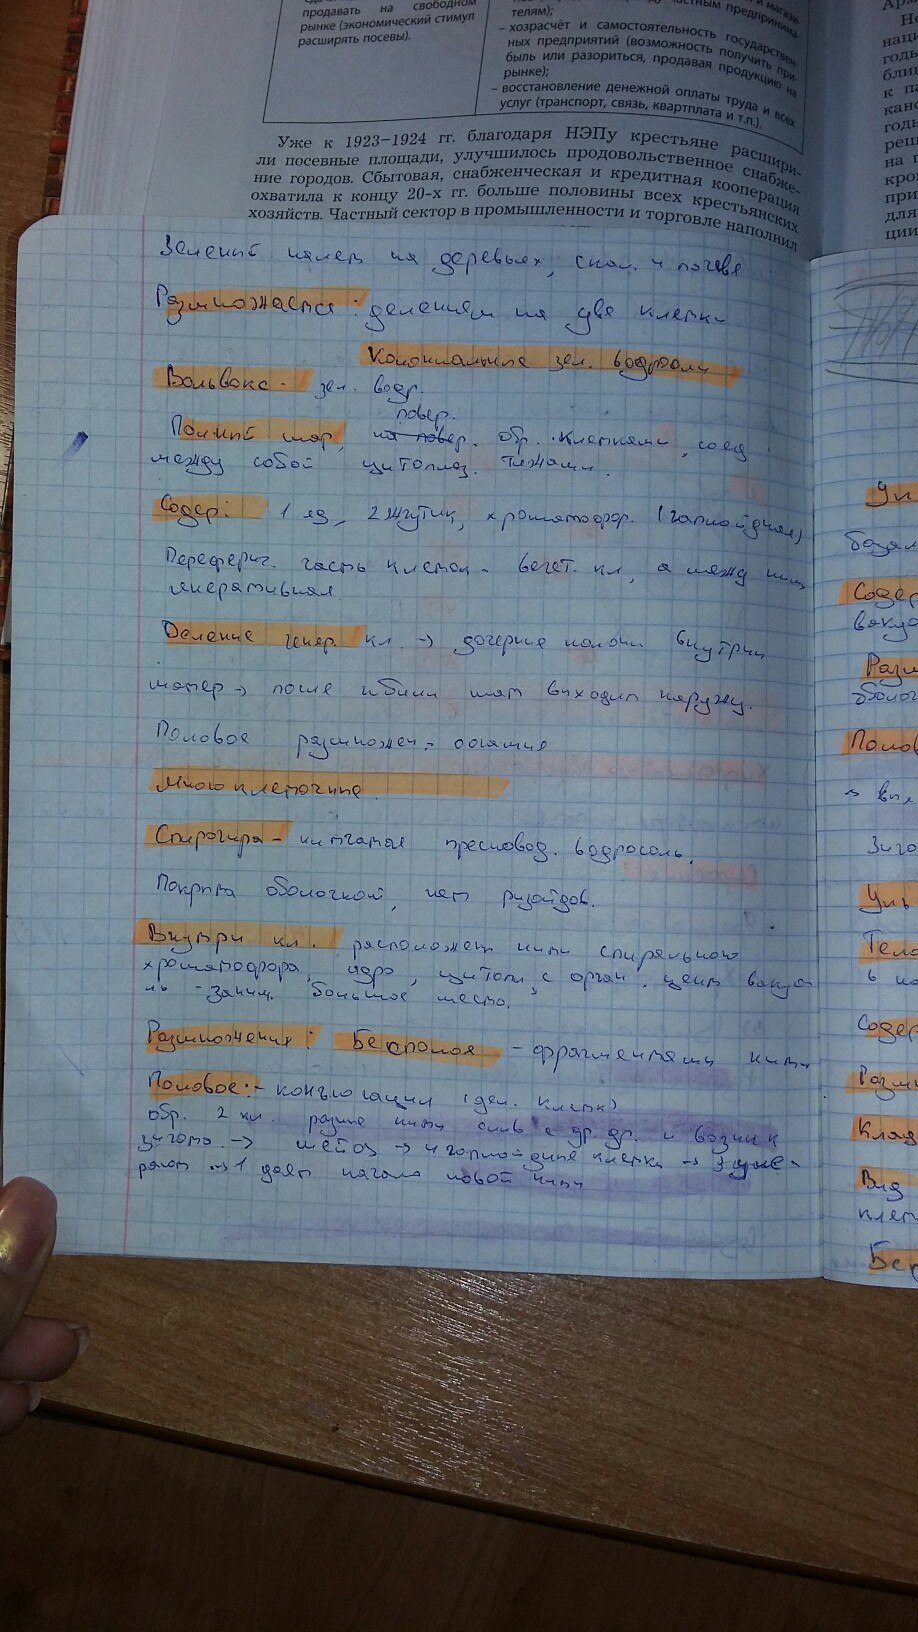 продавать на свободном
рынке (экономический стимул
расширять посевы).
телям);
– хозрасчёт и самостоятельность государствен-
ных предприятий (возможность получить при-
быль или разориться, продавая продукцию на
рынке);
– восстановление денежной оплаты труда и всех
услуг (транспорт, связь, квартплата и т.п.).
Уже к 1923–1924 гг. благодаря НЭПу крестьяне расшири-
ли посевные площади, улучшилось продовольственное снабже-
ние городов. Сбытовая, снабженческая и кредитная кооперация
охватила к концу 20-х гг. больше половины всех крестьянских
хозяйств. Частный сектор в промышленности и торговле наполнил
Зеленый налет на деревьях, скал. и почве
Размножается: делением на две клетки
Колониальные зел. водоросли
Вольвокс - зел. водр.
повер.
Полный шар, на повер. обр. клетками, соед
между собой цитоплаз. тяжами.
Содер: 1 яд, 2 жгутик, хроматофор. (гаплойдная)
Перефериг. часть клеток - вегет. кл, а межд ними
генеративная.
Деление генер. кл. → дочерние колони внутри
матер → после гибели мат выходит наружу.
Половое размножен - оогамия
Многоклеточные
Спирогира - нитчатая пресновод. водросоль.
Покрыта оболочкой, нет ризойдов.
Внутри кл. расположен нити спирального
хроматофора, ядро, цитопл с орган, цент вакуо-
ль - заним. большое место.
Размножения: Бесполоя - фрагментами нити
Половое: - конъюгации (дел. клетк)
обр. 2 кл. разные нити слив с др. др. и возник
зигота → мейоз → 4 гаплойдные клетки → 3 уми-
рают → 1 дает начало новой нити
Содер
ваку
Тело
Содер
Клад
Вид
клет